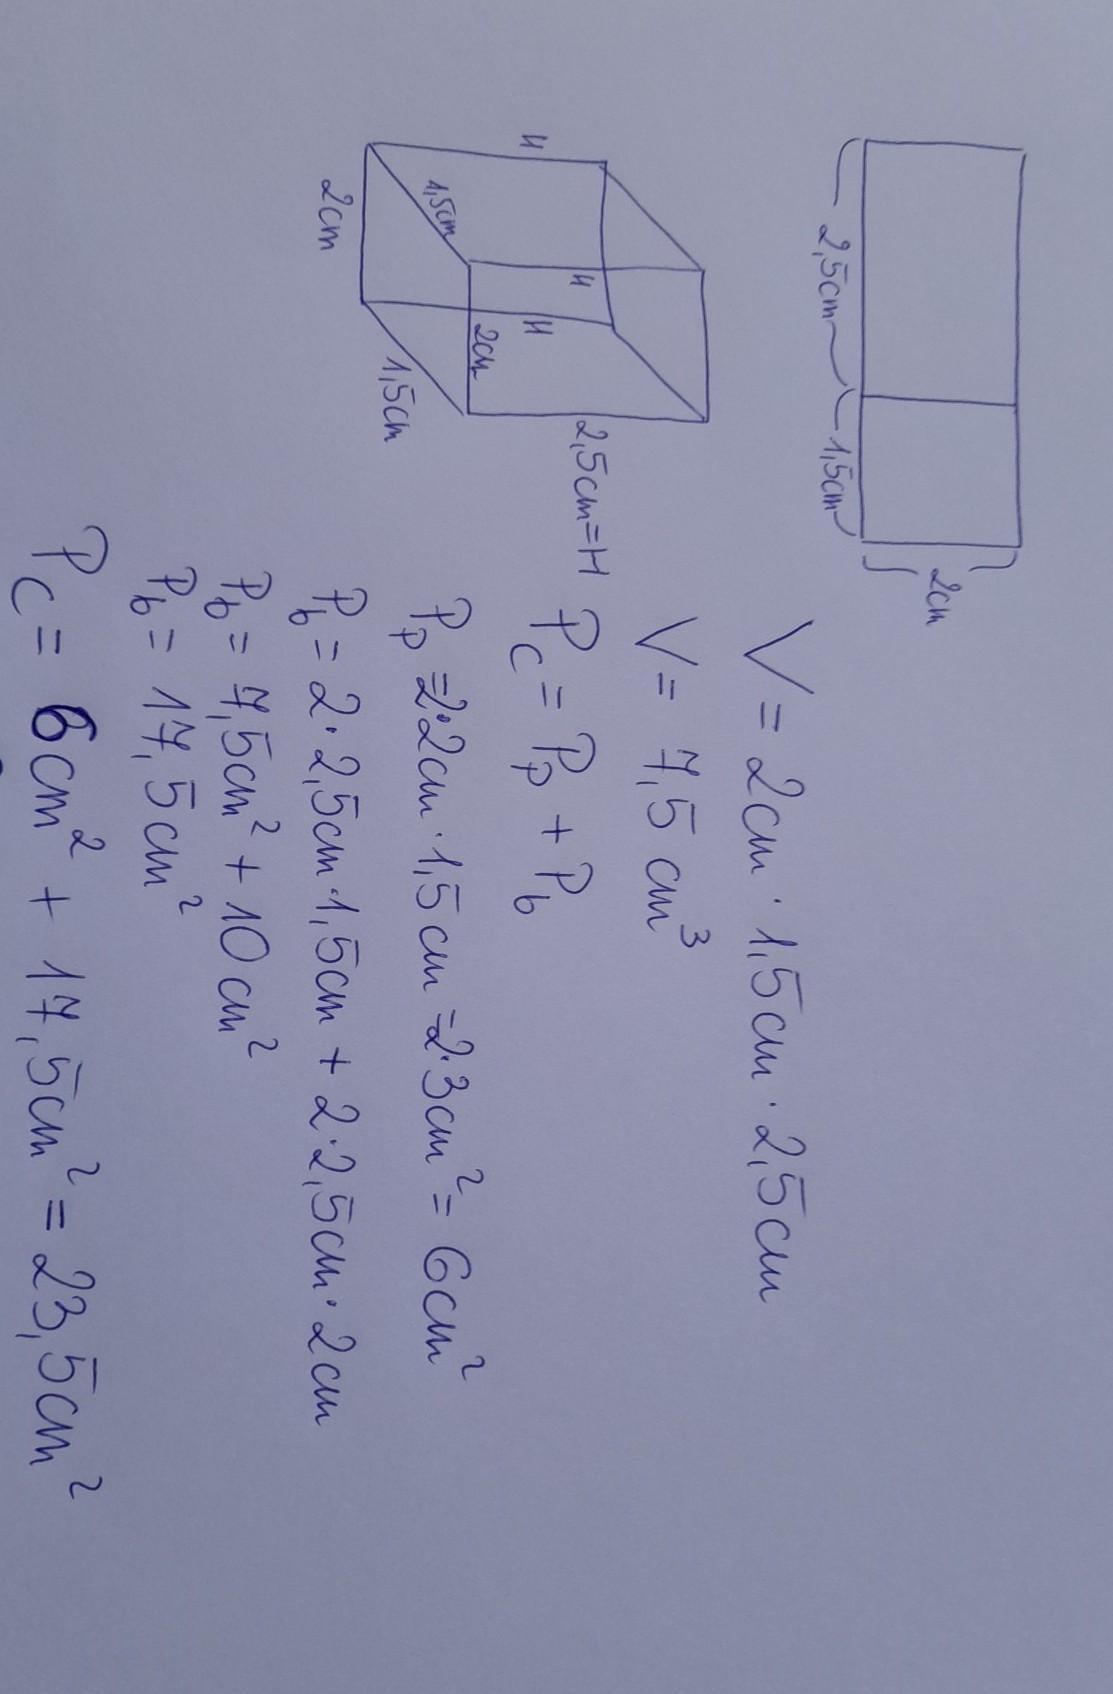 2,5cm 1,5cm
2cm
H
H
H
1,5cm
2cm
2cm
1,5cm
2,5cm=H
V = 2cm · 1,5cm · 2,5cm
V = 7,5 cm³
Pc = Pp + Pb
Pp = 2·2cm · 1,5cm = 2·3cm² = 6cm²
Pb = 2 · 2,5cm · 1,5cm + 2 · 2,5cm · 2cm
Pb = 7,5cm² + 10cm²
Pb = 17,5cm²
Pc = 6cm² + 17,5cm² = 23,5cm²